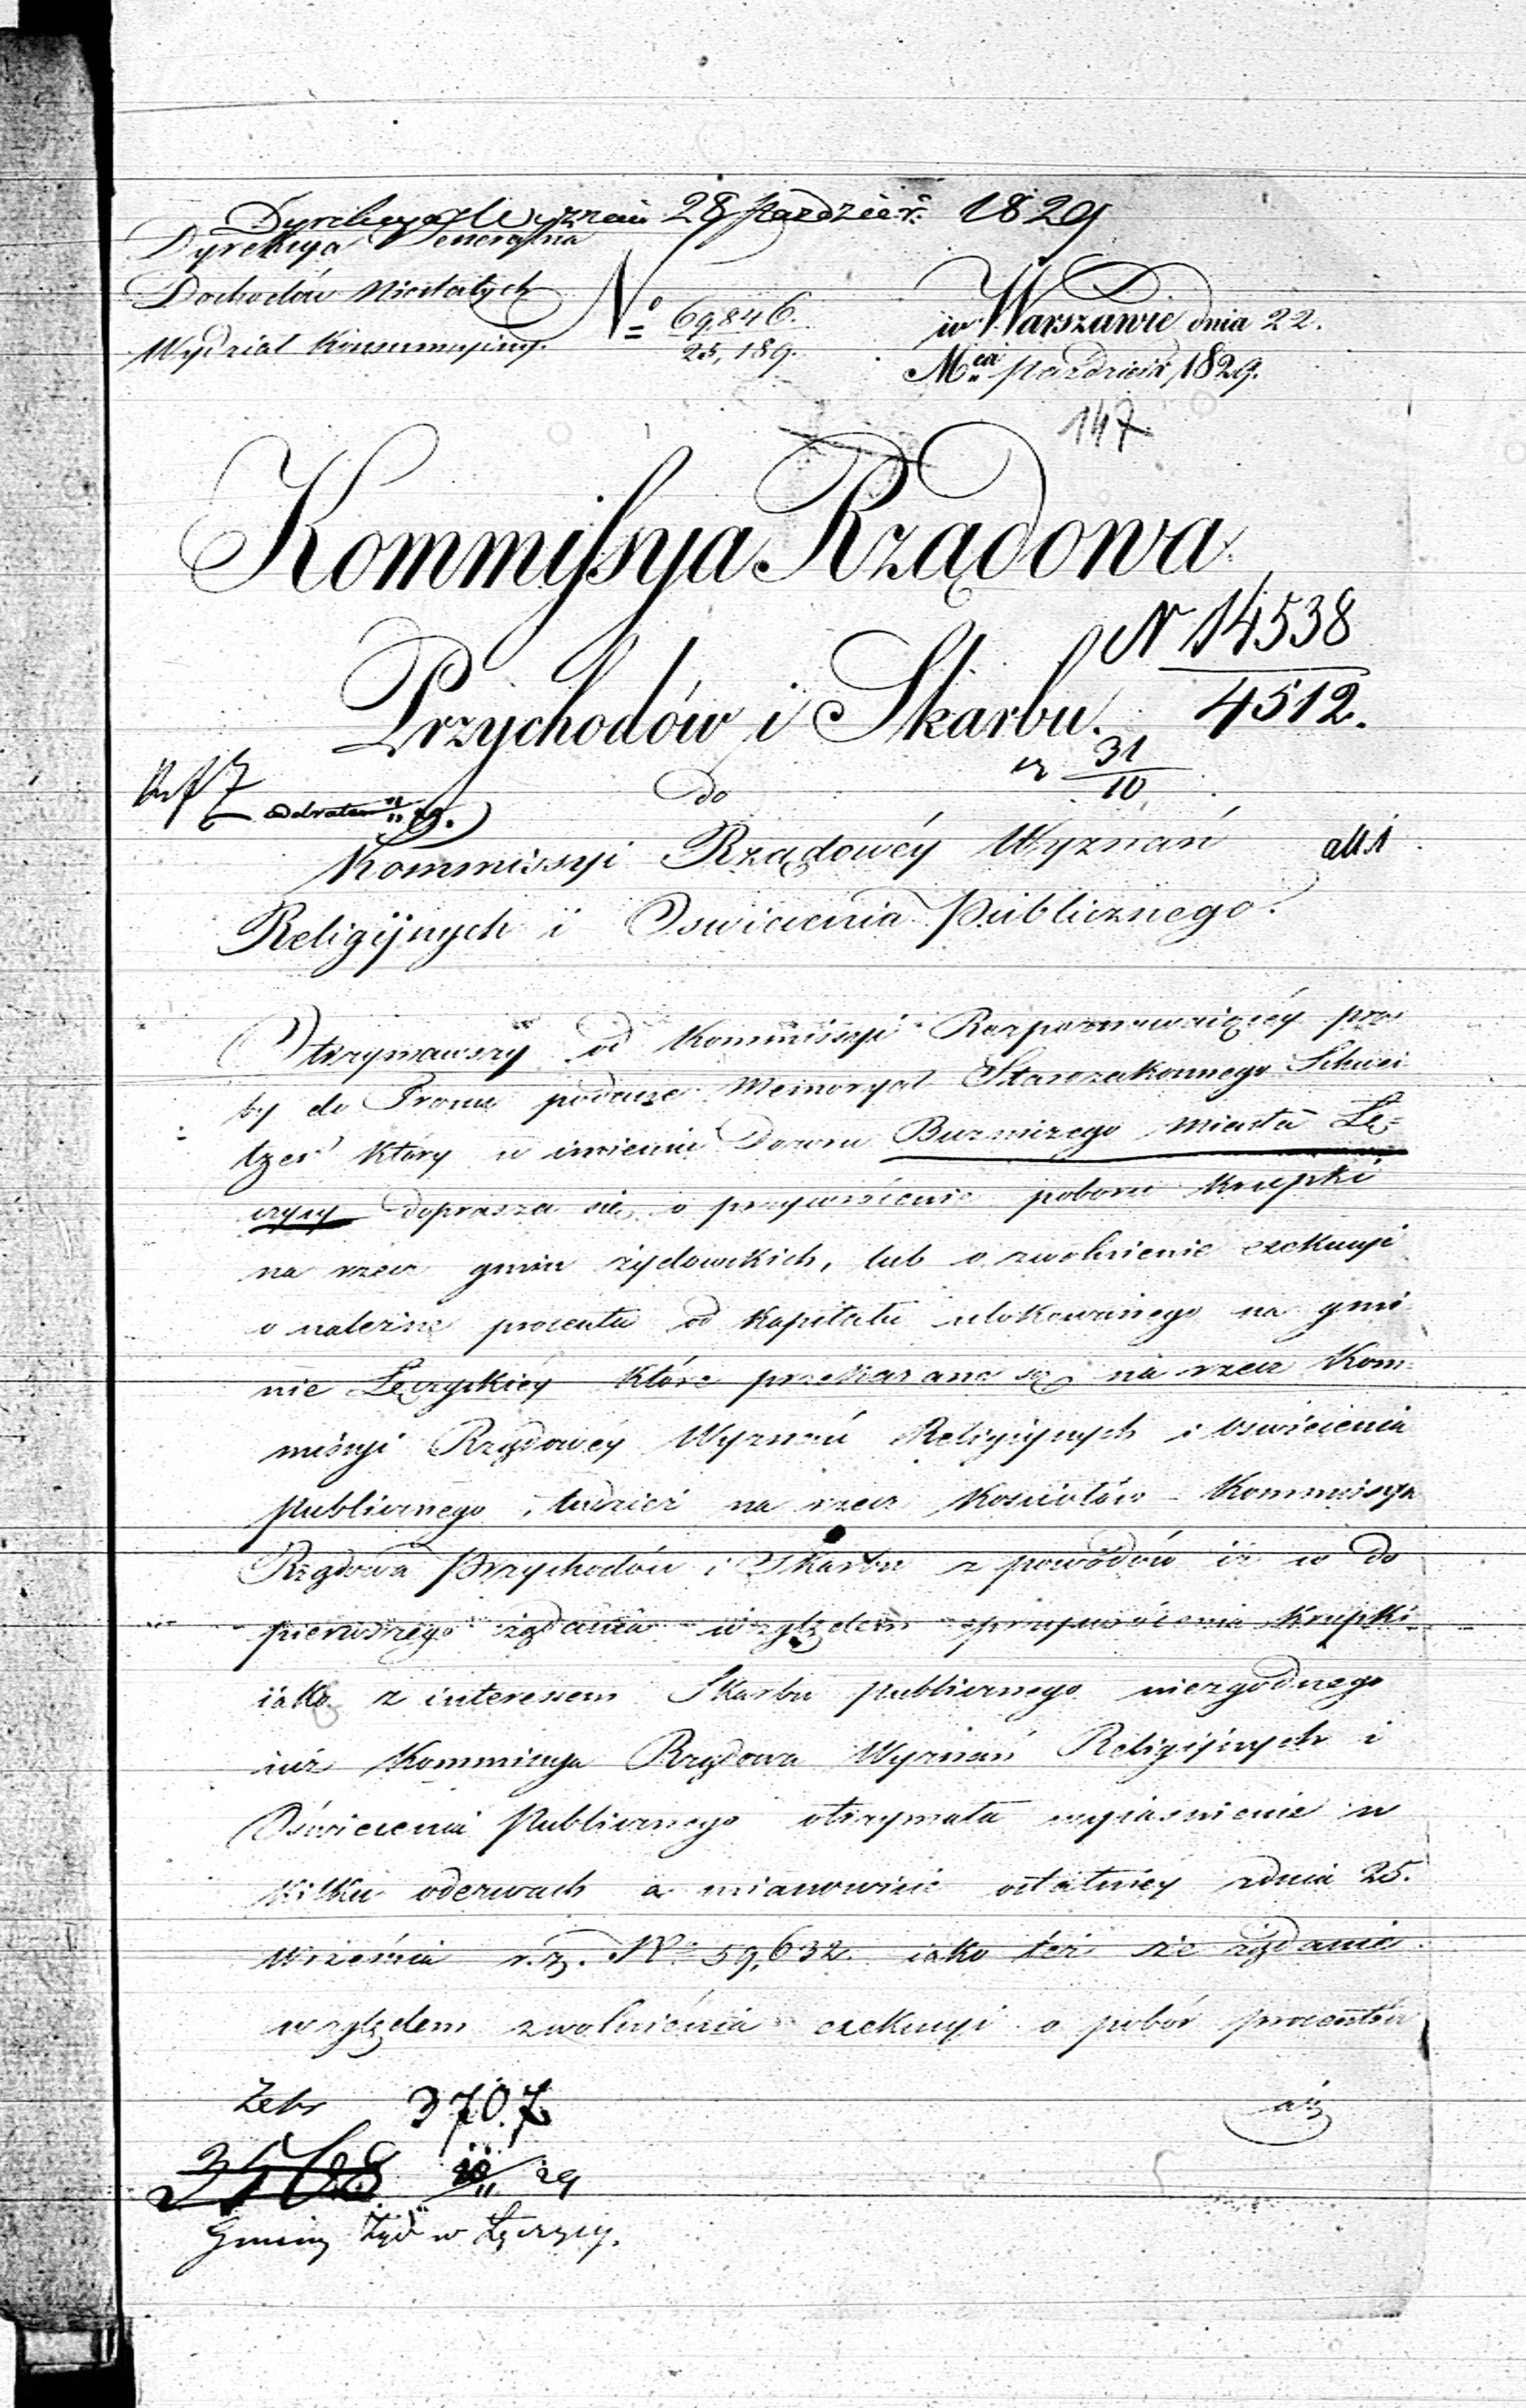 Dyrekcya Wyznań 28 Paździer. 1829
Dyrekcya Generalna
Dochodów Niestałych
Wydział Konsumcyiny.
Nº 69,846.
25,189.
w Warszawie dnia 22.
Mca Paździer 1829.
147
Kommissya Rządowa
Przychodów i Skarbu.
N 14538
4512.
31
10
do
Kommissyi Rządowéy Wyznań
Religijnych i Oswiecenia Publicznego.
Otrzymawszy od Kommissyi Rozpoznawaiącéy proś
by do Tronu podane Memoryał Starozakonnego
który w imieniu Dozoru Bużniczego Miasta Łę-
czycy doprasza się o przywrócenie poboru Krupki
na rzecz gmin żydowskich, lub o zwolnienie exekucyi
o należne procenta od Kapitału ulokowanego na gmi
nie Łęczyckiéy które przekazane są na rzecz Kom-
missyi Rządowéy Wyznań Religijnych i Oswiecenia
Publicznego, tudzież na rzecz Kosciołów Kommissya
Rządowa Przychodów i Skarbu z powodów iż w do
pierwszego żądania względem przywrócenia Krupki
iako z interessem Skarbu publicznego niezgodnego
iuż Kommissya Rządowa Wyznań Religijnych i
Oświecenia Publicznego otrzymała wyiasnienie w
Kilku odezwach a mianowicie ostatniéy z dnia 25.
Września r. z. Nº 59,632. iako téż że żądanie
względem zwolnienia exekucyi o pobór procentów
3707
29
3568
Gminy Żyd w Łęczycy.